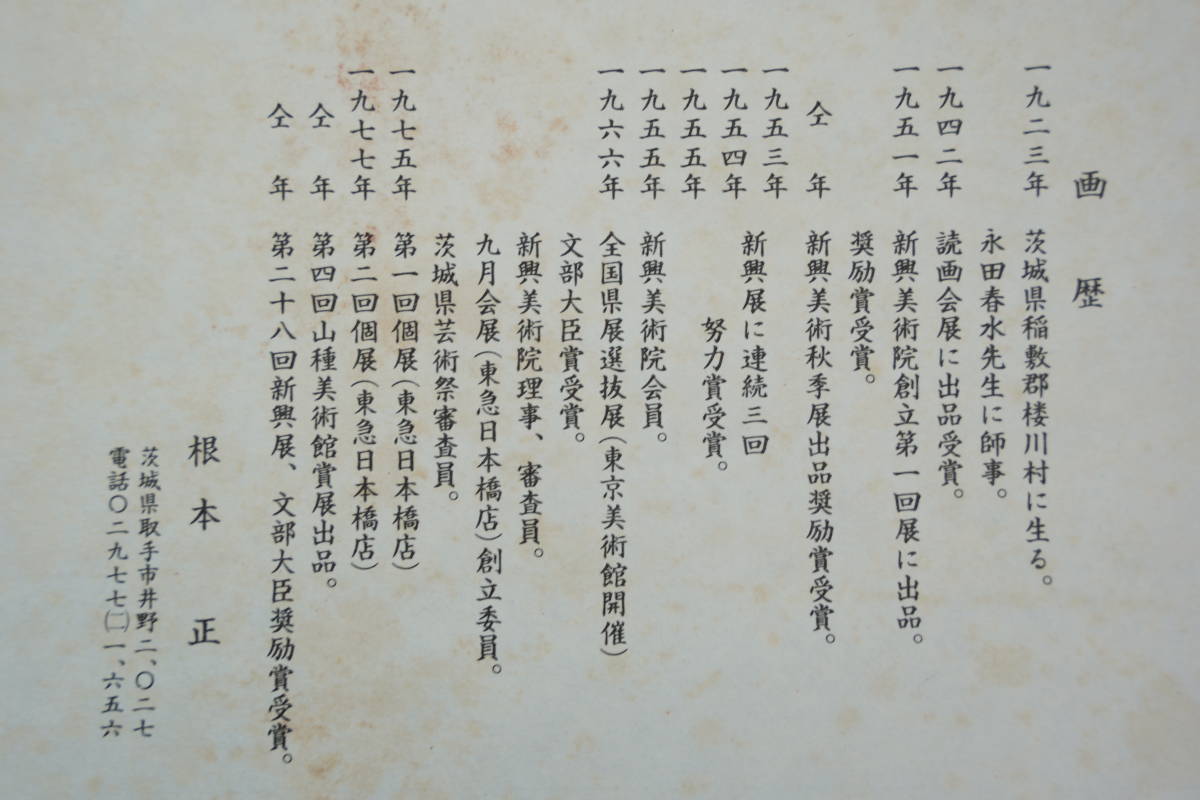 画歴
一九二三年 茨城県稲敷郡楼川村に生る。
永田春水先生に師事。
一九四二年 読画会展に出品受賞。
一九五一年 新興美術院創立第一回展に出品。
奨励賞受賞。
仝年 新興美術秋季展出品奨励賞受賞。
一九五三年
一九五四年 新興展に連続三回
一九五五年 努力賞受賞。
一九五五年 新興美術院会員。
一九六六年 全国県展選抜展(東京美術館開催)
文部大臣賞受賞。
新興美術院理事、審査員。
九月会展(東急日本橋店)創立委員。
茨城県芸術祭審査員。
一九七五年 第一回個展(東急日本橋店)
一九七七年 第二回個展(東急日本橋店)
仝年 第四回山種美術館賞展出品。
仝年 第二十八回新興展、文部大臣奨励賞受賞。
根本正
茨城県取手市井野二、〇二七
電話〇二九七七(二)一、六五六